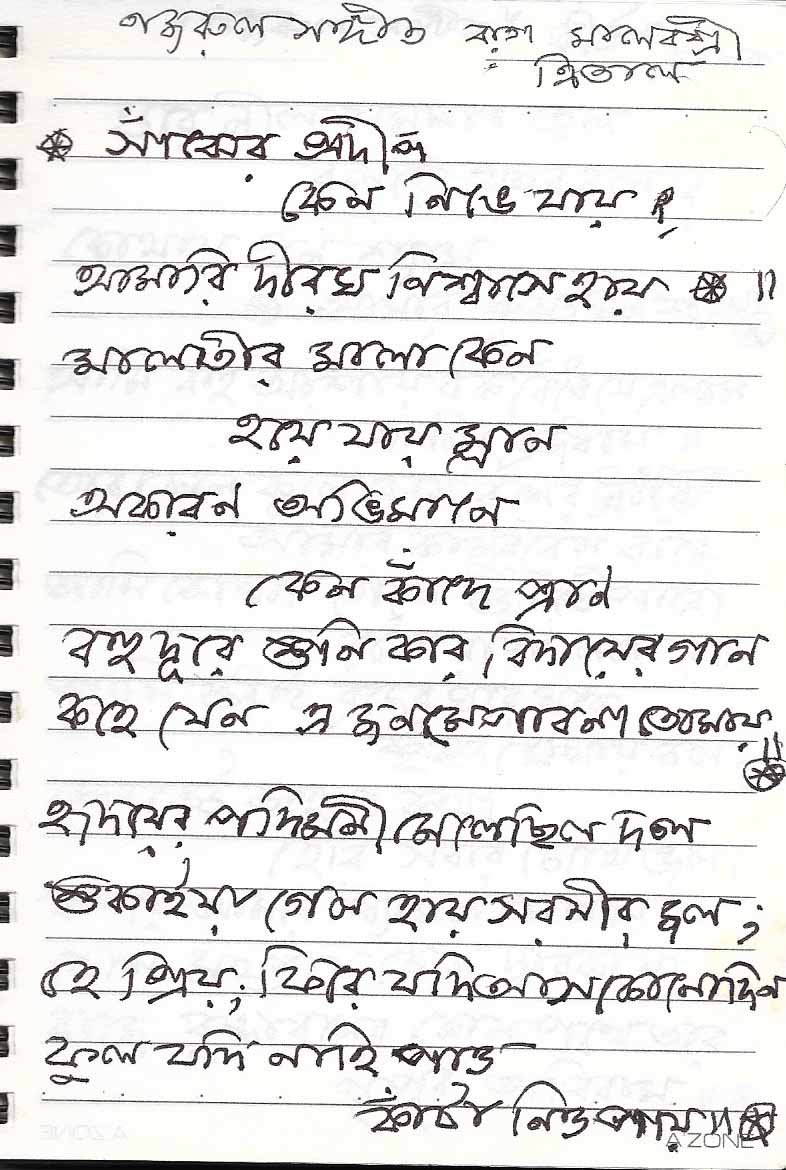 নজরুল সঙ্গীত রাগ মালবশ্রী
ত্রিতাল
সাঁঝের প্রদীপ
কেন নিভে যায় ?
আমারি দীরঘ নিশ্বাসে হায় ॥
মালতীর মালা কেন
হয়ে যায় ম্লান
অকারন অভিমানে
কেন কাঁদে প্রান
বহু দূরে শুনি কার বিদায়ের গান
কহে যেন এ জনমে পাবনা তোমায় ॥
হৃদয়ের পদ্মিনী মেলেছিল দল
শুকাইয়া গেল হায় সরসীর জল ;
হে প্রিয়; ফিরে যদি আস কোনোদিন
ফুল যদি নাহি পাও
কাঁটা নিও পায় ॥
A'ZONE